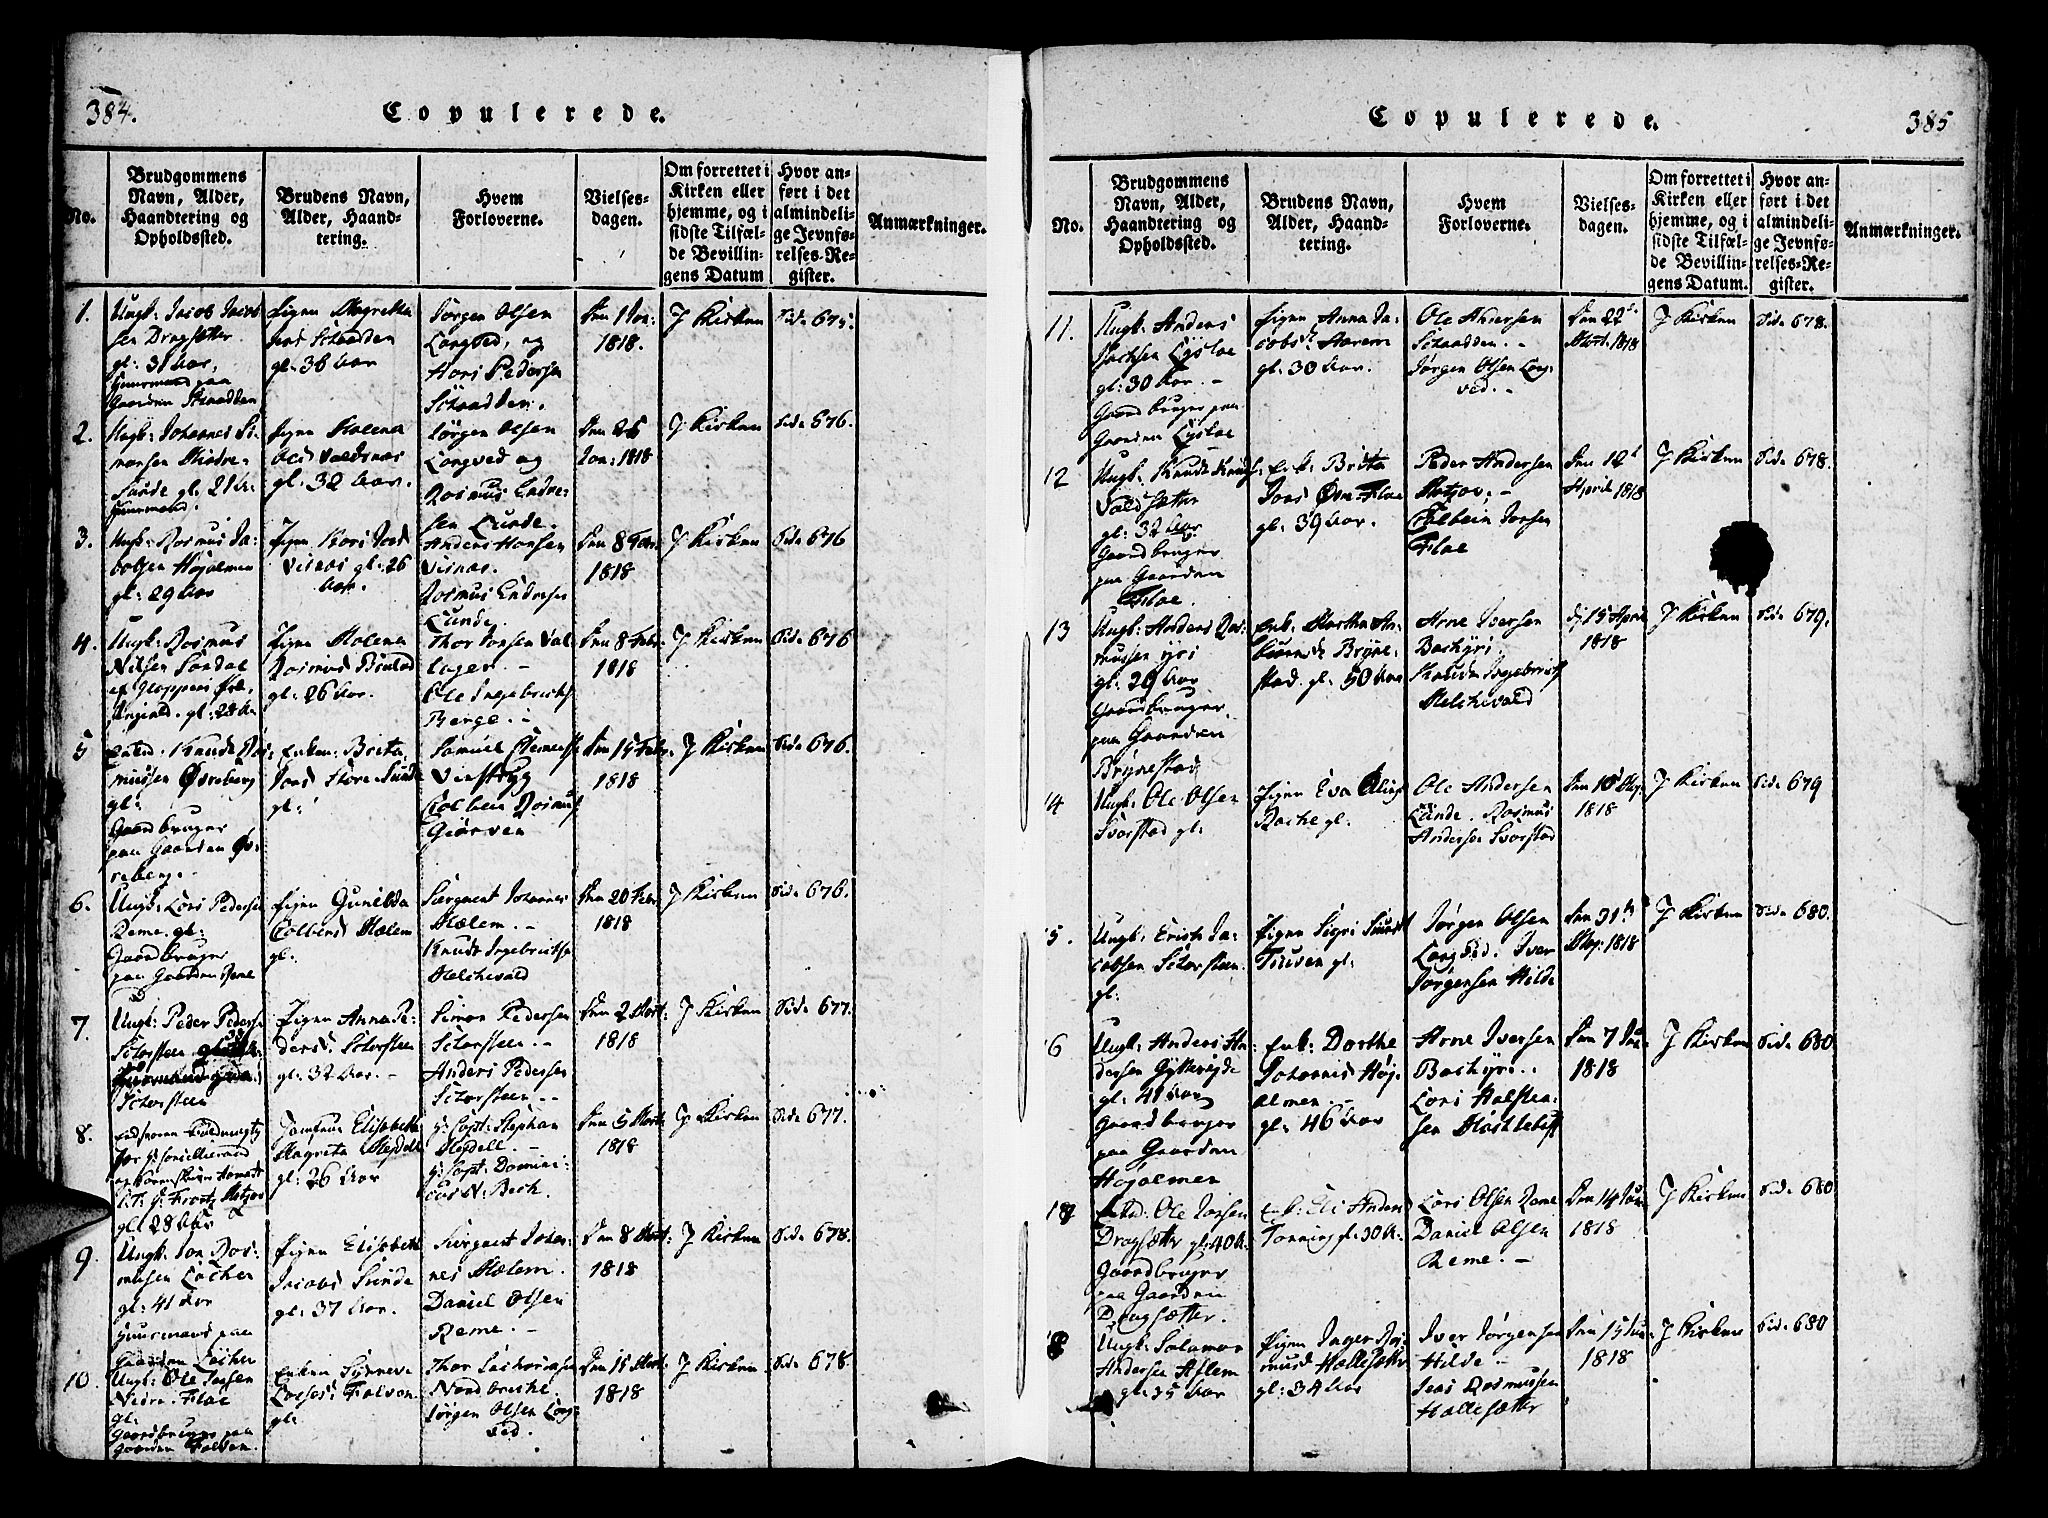 384.
Copulerede.
No.
Brudgommens
Navn, Alder,
Haandtering og
Opholdssted.
Brudens Navn,
Alder, Haand-
tering.
Hvem
Forloverne.
Vielses-
dagen.
Om forrettet i
Kirken eller
hjemme, og i
sidste Tilfæl-
de Bevillin-
gens Datum
Hvor an-
ført i det
almindeli-
ge Jevnfø-
relses-Re-
gister.
Anmærkninger.
1.
Ungk: Jacob Jacob
sen Dragsætter
gl: 31 Aar,
Huusmand paa
Gaarden Staadden
Pigen Magretha
Staadden
gl: 36 Aar
Jørgen Olsen
Langved, og
Hans Pedersen
Staadden.
Den 1 Jan:
1818.
J Kirken
Side 675.
2.
Ungk: Johannes Si-
monsen Nedre-
Sunde gl: 21 Aar
Huusmand.
Pigen Malena
Olsd Valdsnæs
gl: 32 Aar.
Jørgen Olsen
Langved og
Rasmus Endre-
sen Lunde.
Den 25
Jan: 1818
J Kirken
Side 676.
3.
Ungk: Rasmus Ja-
cobsen Højalmen
gl: 29 Aar
Pigen Kari Jonsd
Visnæs gl: 26
Aar.
Anders Hansen
Visnæs.
Rasmus Endresen
Lunde.
Den 8 Febr.
1818
J Kirken
Side 676
4.
Ungk: Rasmus
Nilsen Sandal
af Gloppens
gl: 28 Aar
Pigen Malena
Rasmusd
gl: 26 Aar.
Thor Jonsen Val-
lager. -
Ole Ingebrigts
Berge. -
Den 8 Febr.
1818
J Kirken
Side 676
5
Enkem. Knude Ras-
mussen Øvreberg
gl:
Gaardbruger
paa Gaarden Øv-
reberg. -
Enken: Brita
Jonsd Store Sunde
gl:
Samuel Clemens
Vinstryg
Colbein Rasmus
Giørven
Den 15 Febr.
1818
J Kirken
Side 676.
6.
Ungk: Lars Pedersen
Reme. gl:
Gaardbruger
paa Gaarden
Pigen Gunilda
Colbensd Mælem
gl:
Sergeant Johannes
Mælem. -
Knude Ingebrigtsen
Melchevald
Den 20 Febr.
1818
J Kirken
Side 676.
7.
Ungk: Peder Peders
Storsteen
Storsteen
Pigen Anna Pe-
dersd. Storsteen
gl: 32 Aar. -
Simon Pedersen
Storsteen. -
Anders Pedersen
Storsteen. -
Den 2 Mart.
1818
J Kirken
Side 677.
8.
gl: 28 Aar
Jomfrue Elisabeth
Magreta Mejdell
gl: 26 Aar
H: Capt: Stephan
Mejdell. -
H: Capt: Domini-
cus N: Bech.
Den 5 Mart
1818
J Kirken
Side 677.
9.
Ungk: Jon Ras-
musen Løchen
gl: 41 Aar
Huusmand paa
Gaarden Løchen
Pigen Elisabeth
Jacobsd Sunde
gl: 37 Aar.
Sergeant Johan-
nes Mælem.
Daniel Olsen
Reme. -
Den 8 Mart
1818
J Kirken
Side 678.
10.
Ungk: Ole Jonsen
Nedre-Floe
gl:
Gaardbruger paa
Gaarden Folven.
Enken Synneve
Folven
gl:
Thor Zachariasen
Nordbrecke.
Jørgen Olsen Lang-
ved.
Den 15 Mart
1818
J Kirken
Side 678.
385
Copulerede.
No.
Brudgommens
Navn, Alder,
Haandtering og
Opholdssted.
Brudens Navn,
Alder, Haand-
tering.
Hvem
Forloverne.
Vielses-
dagen.
Om forrettet i
Kirken eller
hjemme, og i
sidste Tilfæl-
de Bevillin-
gens Datum.
Hvor an-
ført i det
almindeli-
ge Jevnfø-
relses-Re-
gister.
Anmærkninger.
11.
Ungk: Anders
Isachsen Lysloe
gl: 30 Aar. -
Gaardbruger paa
Gaarden Lysloe
Pigen Anna Ja-
cobsd Aarem
gl: 30 Aar.
Ole Andersen
Staadden. -
Jørgen Olsen Lang-
ved. -
Den 22de
Mart: 1818
J Kirken
Side 678.
12
Ungk: Knude Knuds
Valdsætter
gl: 32 Aar.
Gaardbruger
paa Gaarden
Floe.
Enk: Brita
Jonsd Øvre-Floe
gl: 39 Aar.
Peder Andersen
Colbein Jonsen
Floe
Den 12t
April 1818
J Kirken
Side 678.
13
Ungk: Anders Ras-
mussen
gl: 29 Aar
Gaardbruger
paa Gaarden
Brynestad
Enk: Martha An-
biørnsd Bryne-
stad. gl: 50 Aar
Arne Iversen
Bachyri.
Knude Ingebrigts
Melchevald
d. 15 April
1818
J Kirken
Side 679.
14
Ungk: Ole Olsen
Svorstad gl:
Pigen Eva Elings
Rache gl.
Ole Andersen
Lunde. Rasmus
Andersen Svorstad
Den 10 Maj.
1818
J Kirken
Side 679
15.
Ungk: Erich Ja-
cobsen Storsteen.
gl:
Pigen Sigri
Tuuven gl:
Jørgen Olsen
Langved. Iver
Jørgensen Hilde
Den 31te
Maj: 1818
J Kirken
Side 680.
16
Ungk: Anders An-
dersen Gytterigde
gl: 41 Aar
Gaardbruger
paa Gaarden
Højalmen
Enk: Dorthe
Johannisd Høj-
almen. -
gl: 46 Aar
Arne Iversen
Bachyri.
Lars Halsten-
sen
Den 7 Jun
1818
J Kirken
Side 680
17
Enkem: Ole Larsen
Dragsætter gl: 40 A.
Gaardbruger
paa Gaarden
Dragsætter.
Enk: Eli Anders
Tønning gl: 30 A.
Lars Olsen Rame
Daniel Olsen
Reme. -
Den 14 Jun
1818
J Kirken
Side 680
18
Ungk: Salamon
Andersen Aflem
gl: 35 Aar
Pigen Inger Ras-
musd Hallesætter
gl: 34 Aar
Iver Jørgensen
Hilde -
Jens Rasmussen
Hallesætter
Den 15 Jun
1818
J Kirken
Side 680